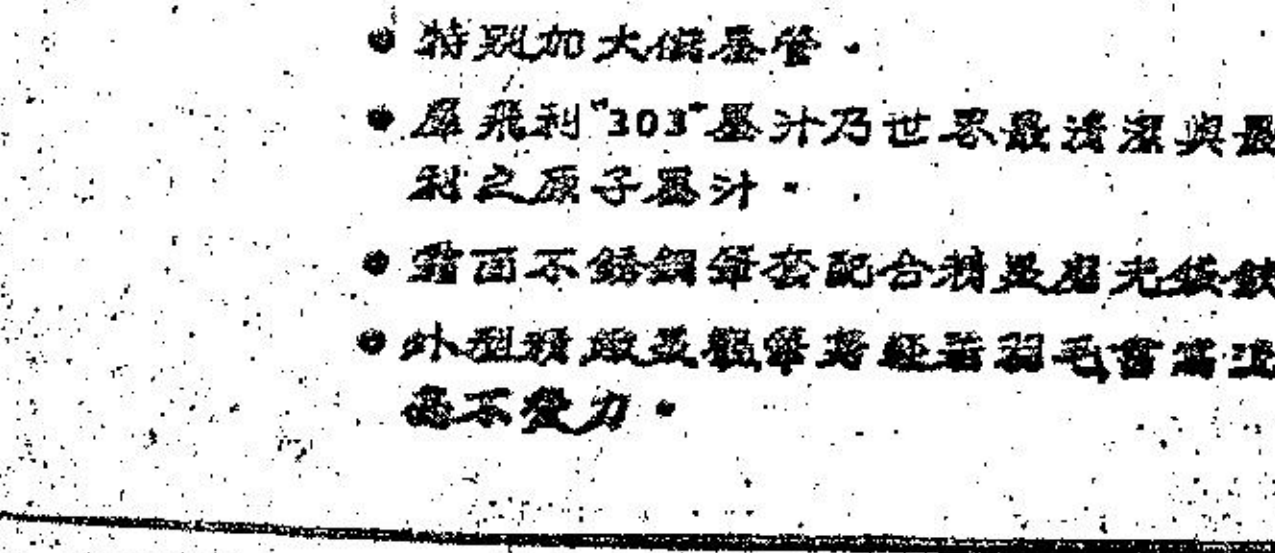 ● 特別加大儲墨管。
● 犀飛利"303"墨汁乃世界最清潔與最
利之原子墨汁。
● 霜面不銹鋼筆套配合精美磨光鋏
● 外型精緻美觀筆身輕若羽毛書寫
毫不費力。